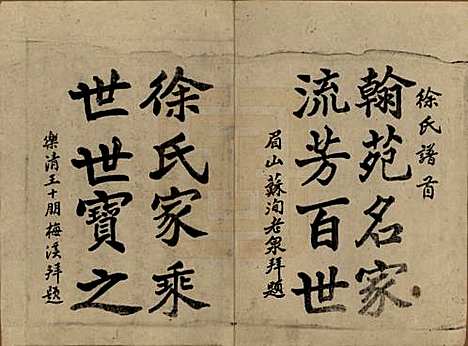 徐氏譜首
翰苑名家
流芳百世
眉山蘇洵老泉拜題
徐氏家乘
世世寶之
樂清王十朋梅溪拜題